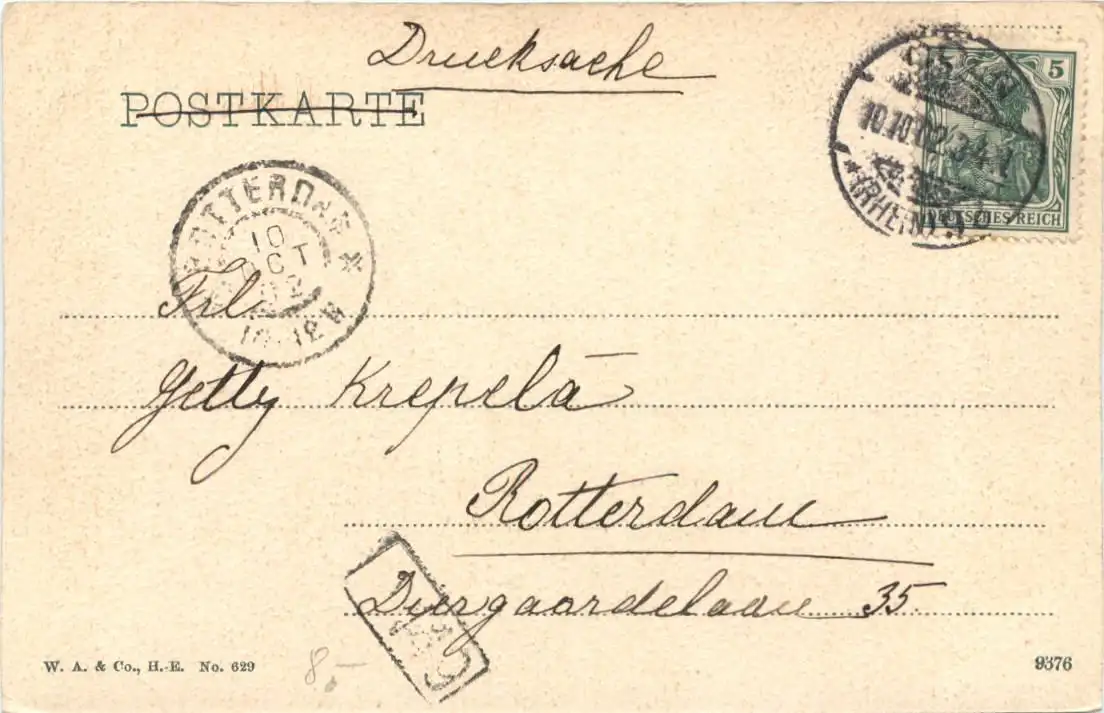 Drucksache
POSTKARTE
5
10.10.02
(RHEIN)
DEUTSCHES REICH
ROTTERDAM
10
OCT
02
10-12V
Frl
Getty Krepelā
Rotterdam
Diergaardelaan 35.
W. A. & Co., H.-E. No. 629
8.-
9376